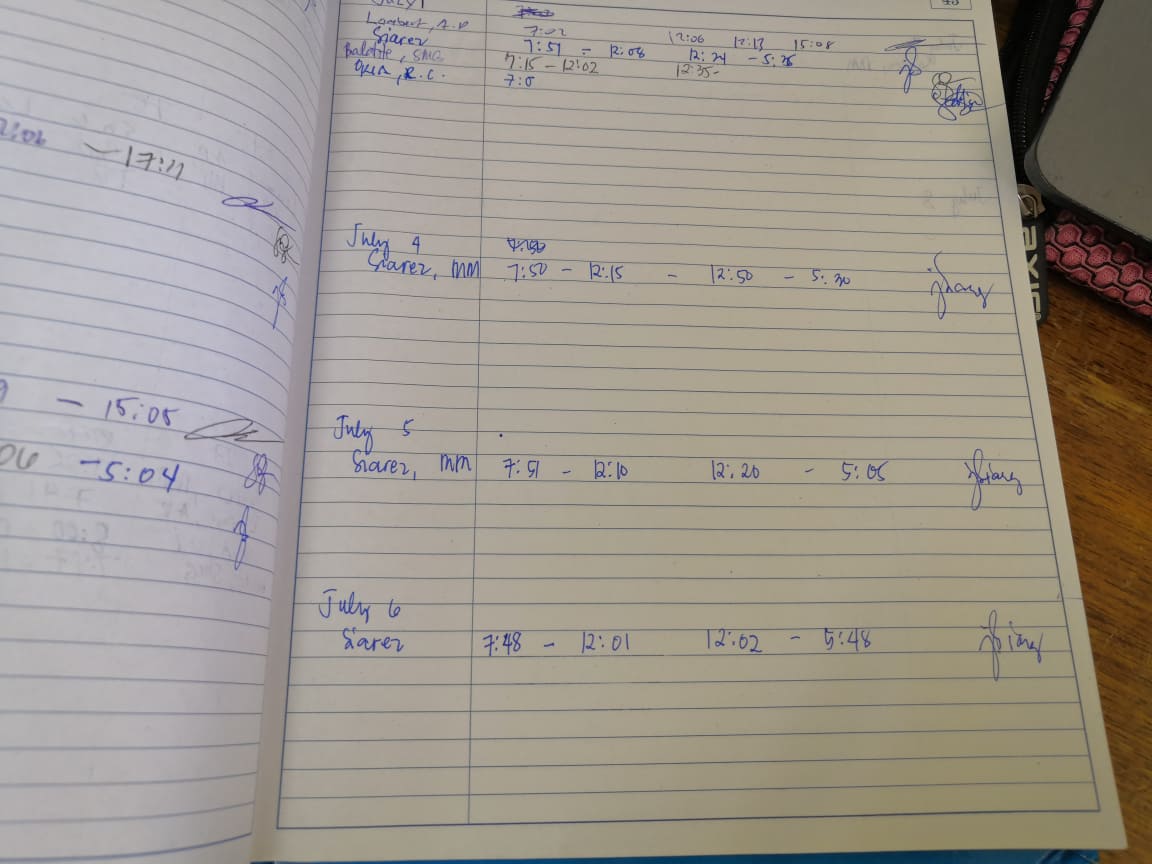 2:06 - 17:11
- 15:05
06 - 5:04
July 1
Lambert, A.P 7:02 12:06 12:13 15:08
Siarez 7:51 - 12:08 12:21 - 5:35
SMG 7:15 - 12:02 12:35-
R.C. 7:0
July 4 7:50
Siarez, MM 7:50 - 12:15 - 12:50 - 5:30
July 5
Siarez, MM 7:51 - 12:10 12:20 - 5:05
July 6
Siarez 7:48 - 12:01 12:02 - 5:48